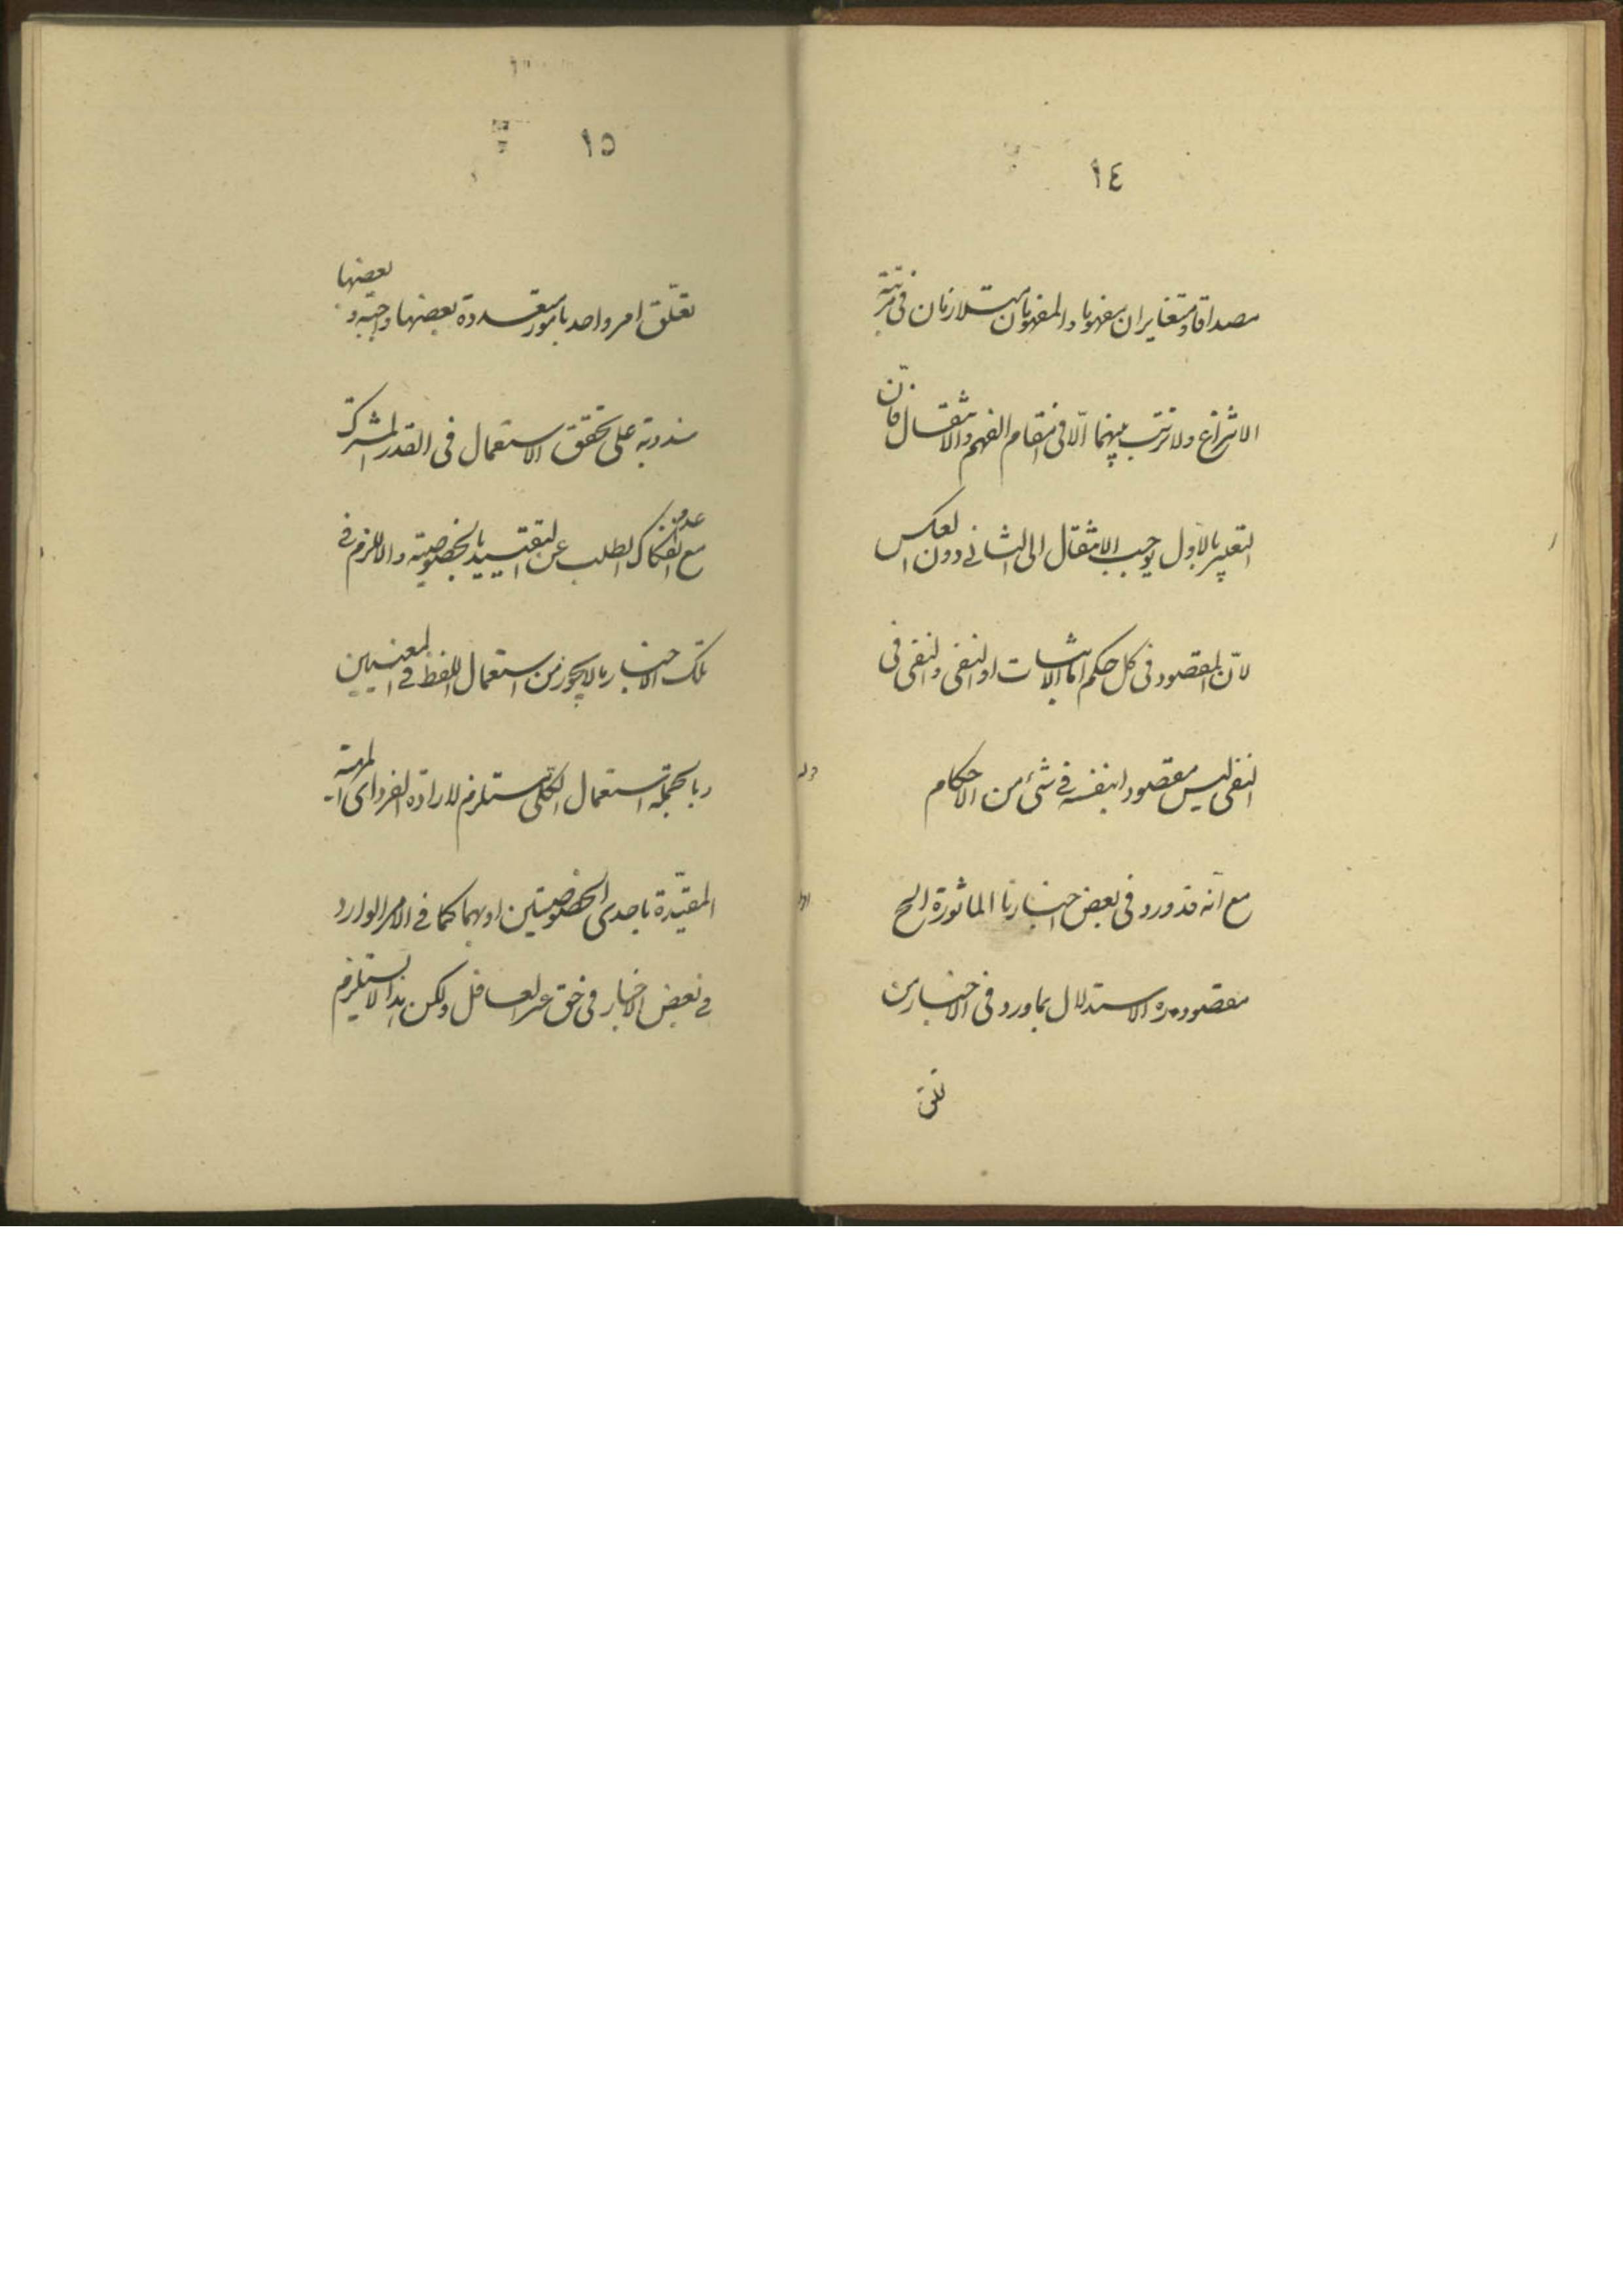 ١٤
مصداقا ومتغايران مفهوما والمفهومان متلازمان فى مرتبة
الانتزاع ولا ترتب بينهما الّا فى مقام الفهم والانتقال فانّ
التعبير بالاول يوجب الانتقال الى الثانى دون العكس
لانّ المقصود فى كل حكم امّا الاثبات او النفى والنفى فى
النفى ليس مقصودا بنفسه فى شئ من الاحكام
مع انّه قد ورد فى بعض اخبارنا الماثورة الخ
مقصوده ره الاستدلال بما ورد فى الاخبار من
تعلق
١٥
تعلّق امر واحد بامور متعددة بعضها واجبة و بعضها
مندوبة على تحقق الاستعمال فى القدر المشترك
مع عدم انفكاك الطلب عن التقييد بالخصوصية والا لزم فى
تلك الاخبار ما لا يجوز من استعمال اللفظ فى المعنيين
وبالجملة استعمال الكلّى مستلزم لارادة الفرد اى المهية
المقيّدة باحدى الخصوصيتين او بهما كما فى الامر الوارد
فى بعض الاخبار فى حق غير الغافل ولكن هذا لا يستلزم